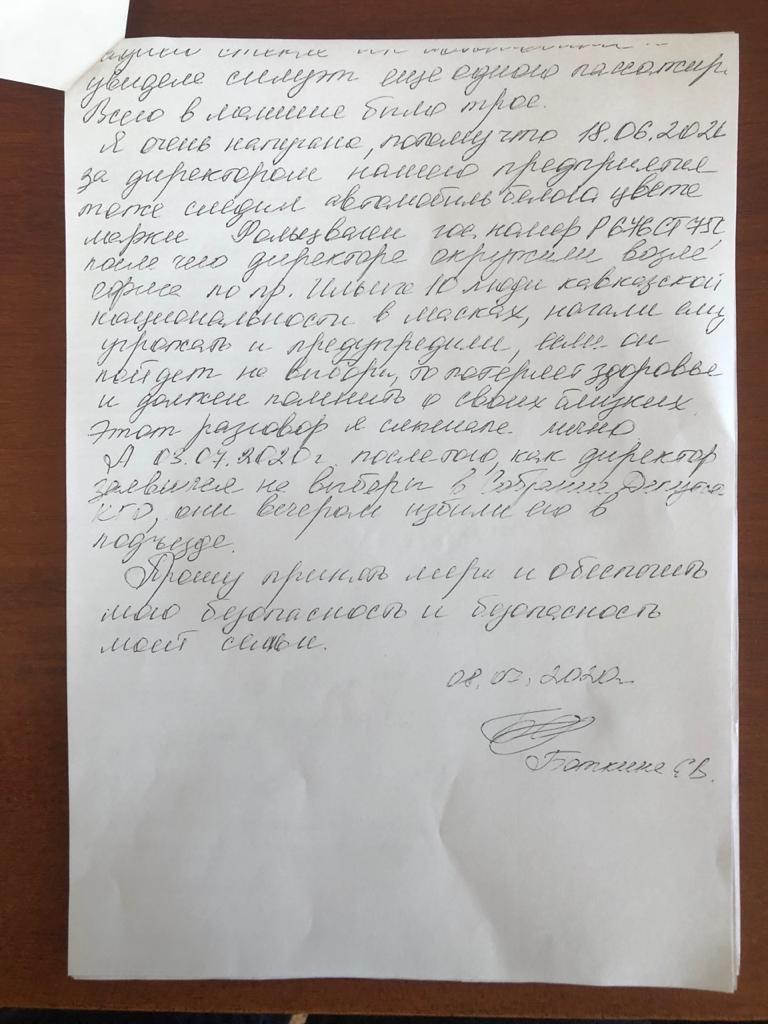 увидела силуэт еще одного пассажир.
Всего в машине было трое.
Я очень напугана, потому что 18.06.202
за директором нашего предприятия
тоже следил автомобиль белого цвета
марки Фольцваген гос. номер Р646СТ
после чего директора окружили возле
офиса по пр. Ильича 10 люди кавказской
национальности в масках, начали ему
угрожать и предупредили, если он
пойдет на выборы, то потеряет здоровье
и должен помнить о своих близких.
Этот разговор я слышала лично
А 03.07.2020г. после того, как директор
заявился на выборы в Собрание Депутатов
КГО, они вечером избили его в
подъезде.
Прошу принять меры и обеспечить
мою безопасность и безопасность
моей семьи.
08.07.2020г.
Боткина Е.В.